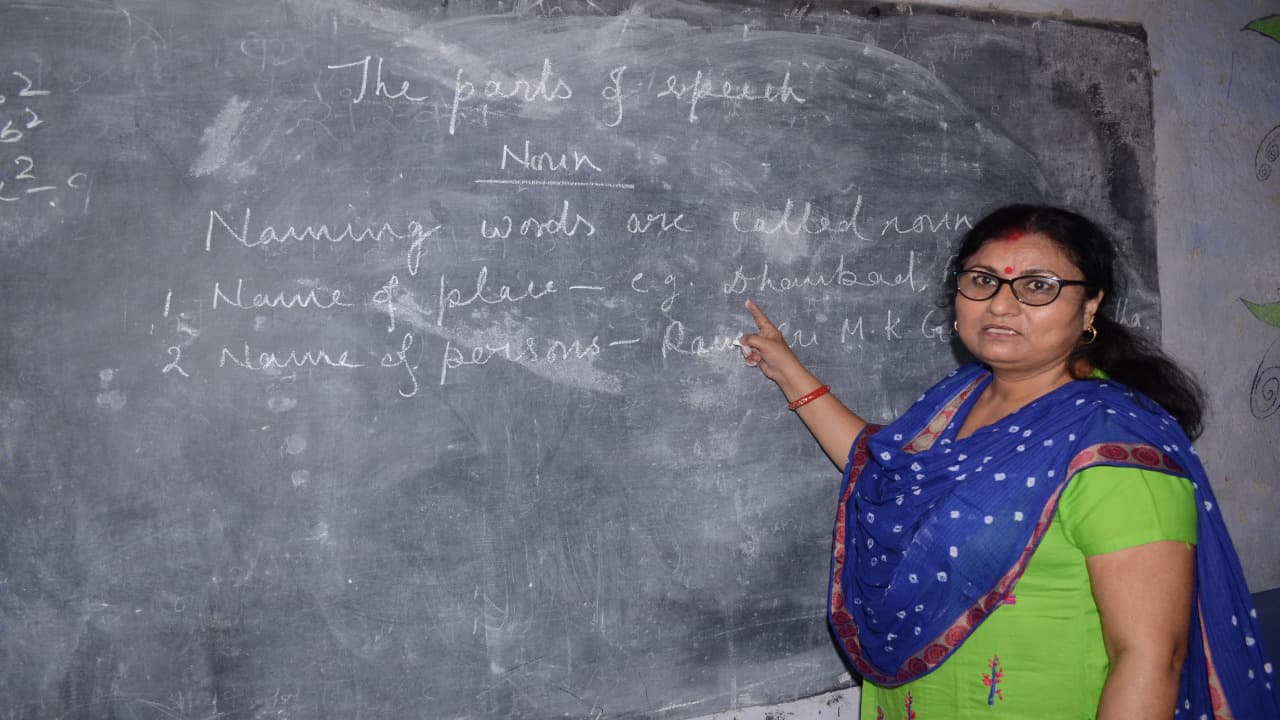 The parts of speech
Noun
Naming words are called noun
1. Name of place – e.g. Dhanbad,
2 Name of persons – Ram Sri M.K G